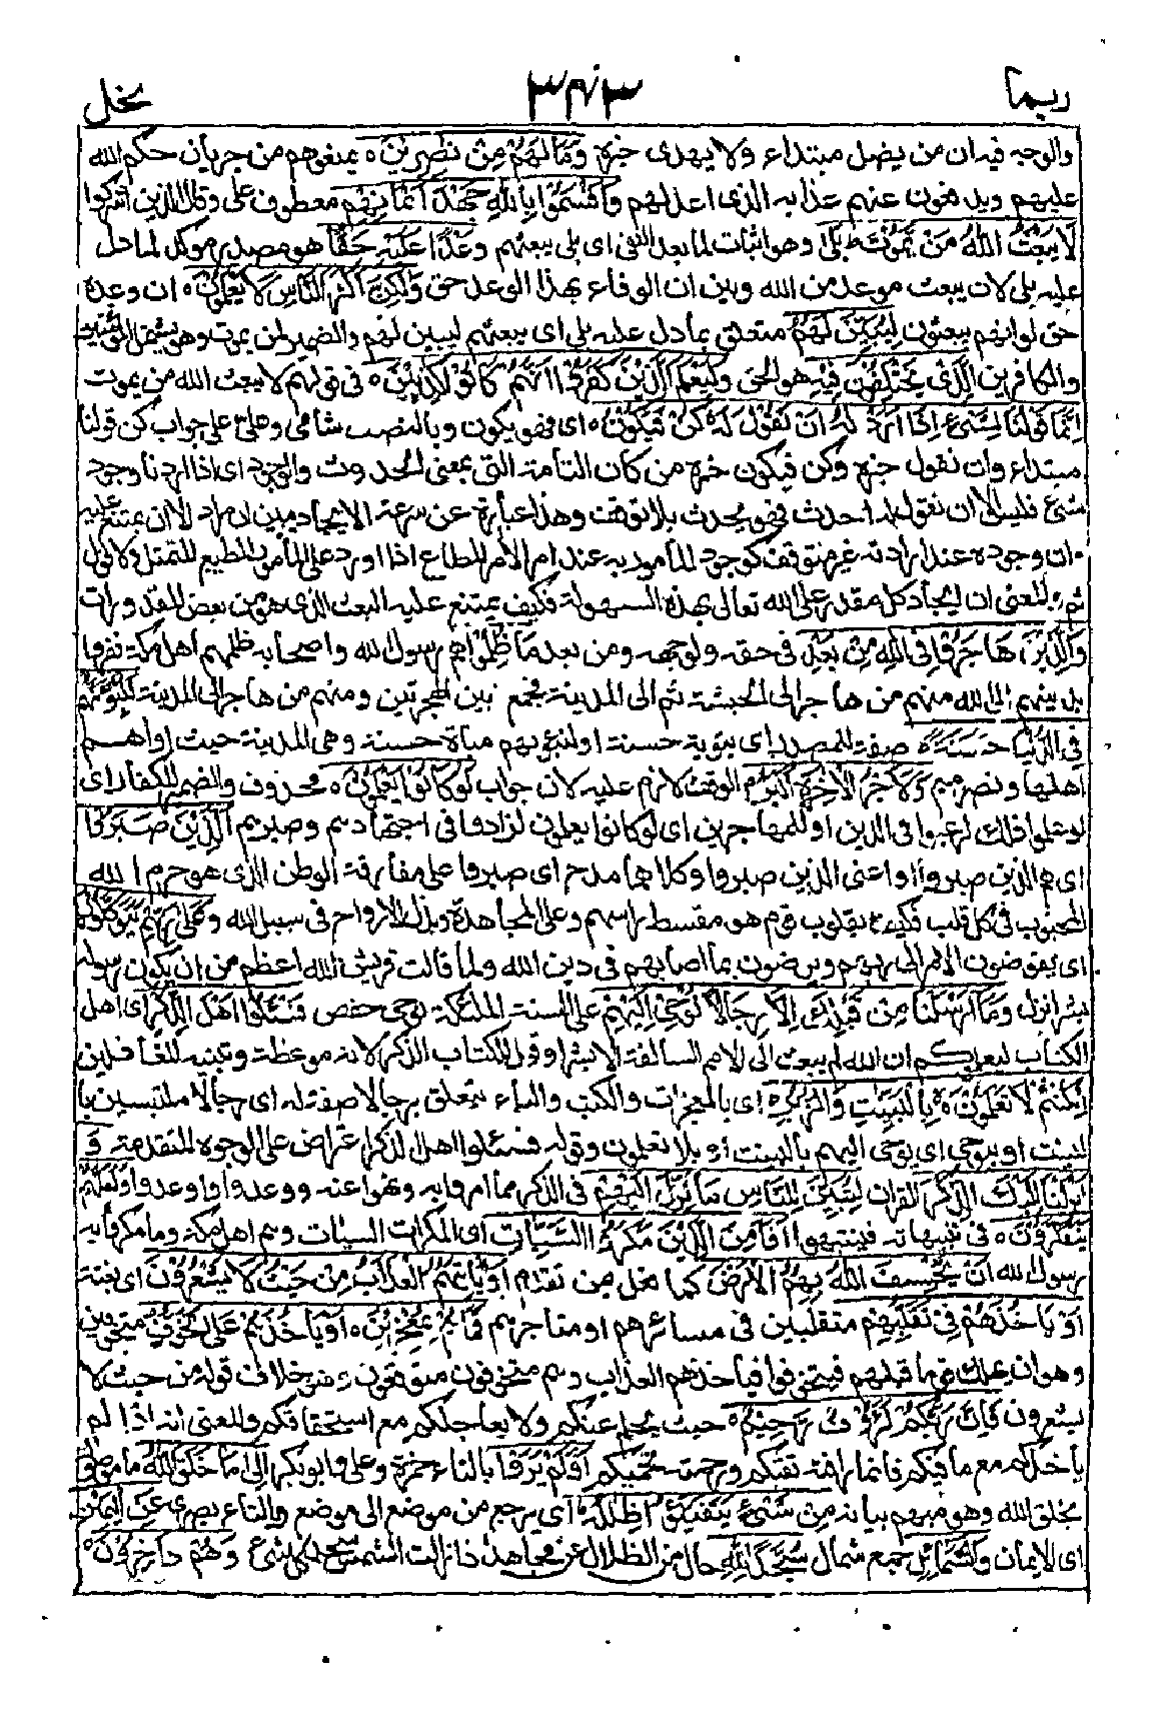 ربما ٣٤٣ نحل
والوجه فيه ان من يضل مبتداء ولا يهدى خبره وَمَا لَهُمْ مِنْ نّٰصِرِيْنَ ه يمنعونهم من جريان حكم الله
عليهم ويدفعون عنهم عذابه الذى اعد لهم وَاَقْسَمُوْا بِاللّٰهِ جَهْدَ اَيْمَانِهِمْ معطوف على وقال الذين اشركوا
لَا يَبْعَثُ اللّٰهُ مَنْ يَّمُوْتُ ط بَلٰى وهو اثبات لما بعد النفى اى بلى يبعثهم وَعْدًا عَلَيْهِ حَقًّا هو مصدر موكد لما دل
عليه بلى لان يبعث موعد من الله وبين ان الوفاء بهذا الوعد حق وَلٰكِنَّ اَكْثَرَ النَّاسِ لَا يَعْلَمُوْنَ ه ان وعده
حق او انهم يبعثون لِيُبَيِّنَ لَهُمُ متعلق بما دل عليه بلى اى يبعثهم ليبين لهم والضمير لمن يموت وهو يشمل المؤمنين
والكافرين الَّذِىْ يَخْتَلِفُوْنَ فِيْهِ هو الحق وَلِيَعْلَمَ الَّذِيْنَ كَفَرُوْا اَنَّهُمْ كَانُوْا كٰذِبِيْنَ ه فى قولهم لا يبعث الله من يموت
اِنَّمَا قَوْلُنَا لِشَىْءٍ اِذَا اَرَدْنٰهُ اَنْ نَّقُوْلَ لَهٗ كُنْ فَيَكُوْنُ ه اى فهو يكون وبالنصب شامى وعلى على جواب كن قولنا
مبتداء وان نقول خبره وكن فيكون خبره من كان التامة التى بمعنى الحدوث والوجود اى اذا اردنا وجود
شئ فليس الا ان نقول له احدث فهو يحدث بلا توقف وهذا عبارة عن سرعة الايجاد يبين ان مراد الا ان يمتنع عليه
وان وجوده عند ارادته غير متوقف كوجود المامور به عند امر الآمر المطاع اذا اورد على المامور المطيع الممتثل ولا قول
ثم والمعنى ان ايجاد كل مقدور على الله تعالى بهذه السهولة فكيف يمتنع عليه البعث الذى هو من بعض المقدورات
وَالَّذِيْنَ هَاجَرُوْا فِى اللّٰهِ مِنْ بَعْدِ فى حقه ولوجهه ومن بعد مَا ظُلِمُوْا هم رسول الله واصحابه ظلمهم اهل مكة ففروا
بدينهم الى الله منهم من هاجر الى الحبشة ثم الى المدينة فجمع بين الهجرتين ومنهم من هاجر الى المدينة لَنُبَوِّئَنَّهُمْ
فِى الدُّنْيَا حَسَنَةً ط صفة للمصدر اى تبوية حسنة او لنبوئنهم مباة حسنة وهى المدينة حيث اواهم
اهلها ونصروهم وَلَاَجْرُ الْاٰخِرَةِ اَكْبَرُ م الوقف لازم عليه لان جواب لَوْ كَانُوْا يَعْلَمُوْنَ ه محذوف والضمير للكفار اى
لو علموا ذلك لرغبوا فى الدين او للمهاجرين اى لو كانوا يعلمون لزادوا فى اجتهادهم وصبرهم الَّذِيْنَ صَبَرُوْا
اى هم الذين صبروا او اعنى الذين صبروا وكلاهما مدح اى صبروا على مفارقة الوطن الذى هو حرم الله
المحبوب فى كل قلب فكيف بقلوب قوم هو مسقط راسهم وعلى المجاهدة وبذل الارواح فى سبيل الله وَعَلٰى رَبِّهِمْ يَتَوَكَّلُوْنَ ه
اى يفوضون الامر الى ربهم ويرضون بما اصابهم فى دين الله ولما قالت قريش الله اعظم من ان يكون رسوله
بشرا نزل وَمَا اَرْسَلْنَا مِنْ قَبْلِكَ اِلَّا رِجَالًا نُّوْحِىْ اِلَيْهِمْ على السنة الملئكة نوحى حفص فَسْئَلُوْا اَهْلَ الذِّكْرِ اى اهل
الكتاب ليعلموكم ان الله لم يبعث الى الامم السالفة الا بشرا وقيل للكتاب الذكر لانه موعظة وتنبيه للغافلين
اِنْ كُنْتُمْ لَا تَعْلَمُوْنَ ه بِالْبَيِّنٰتِ وَالزُّبُرِ ط اى بالمعجزات والكتب والباء يتعلق برجالا صفة له اى رجالا ملتبسين با
لبينت او بنوحى اى يوحى اليهم بالبينت او بلا تعلمون وقوله فسئلوا اهل الذكر اعتراض على الوجوه المتقدمة وَ
اَنْزَلْنَا اِلَيْكَ الذِّكْرَ القران لِتُبَيِّنَ لِلنَّاسِ مَا نُزِّلَ اِلَيْهِمْ فى الذكر مما امروا به ونهوا عنه ووعدوا واوعدوا وَلَعَلَّهُمْ
يَتَفَكَّرُوْنَ ه فى تنبيهاته فينتبهوا اَفَاَمِنَ الَّذِيْنَ مَكَرُوا السَّيِّاٰتِ اى المكرات السيئات وهم اهل مكة وما مكروا به
رسول الله اَنْ يَّخْسِفَ اللّٰهُ بِهِمُ الْاَرْضَ كما فعل بمن تقدم اَوْ يَاْتِيَهُمُ الْعَذَابُ مِنْ حَيْثُ لَا يَشْعُرُوْنَ اى بغتة
اَوْ يَاْخُذَهُمْ فِىْ تَقَلُّبِهِمْ متقلبين فى مسائرهم او متاجرهم فَمَا هُمْ بِمُعْجِزِيْنَ ه اَوْ يَاْخُذَهُمْ عَلٰى تَخَوُّفٍ متخوفين
وهو ان يهلك قوما قبلهم فيتخوفوا فياخذهم العذاب وهم متخوفون متوقعون وهو خلاف قوله من حيث لا
يشعرون فَاِنَّ رَبَّكُمْ لَرَءُوْفٌ رَّحِيْمٌ ه حيث يحلم عنكم ولا يعاجلكم مع استحقاقكم والمعنى انه اذا لم
ياخذكم مع ما فيكم فانما رافته تقيكم ورحمته تحميكم اَوَلَمْ يَرَوْا بالتاء حمزة وعلى وابو بكر اِلٰى مَا خَلَقَ اللّٰهُ ما موصولة
بخلق الله وهو مبهم بيانه مِنْ شَىْءٍ يَّتَفَيَّؤُا ظِلٰلُهٗ اى يرجع من موضع الى موضع والتاء بصرى عَنِ الْيَمِيْنِ
اى الايمان وَالشَّمَائِلِ جمع شمال سُجَّدًا لِلّٰهِ حال من الظلال عن مجاهد اذا زالت الشمس سجد كل شئ وَهُمْ دَاخِرُوْنَ ه